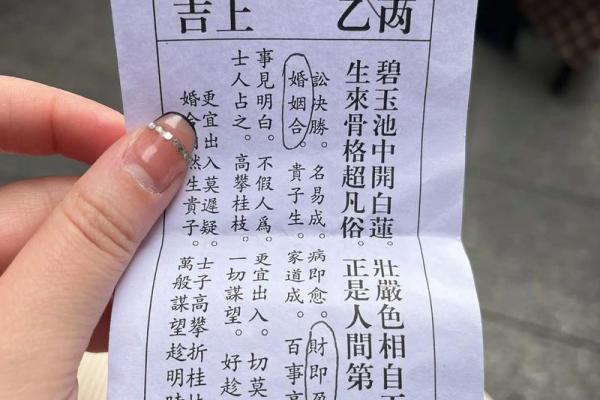 丙乙
上吉
碧玉池中開白蓮。壯嚴色相自
生來骨格超凡俗。正是人間第
訟決勝。名易成。病即愈。財即
婚姻合。貴子生。家道成。百事
事見明白。不假人爲。更宜出入。切莫
士人占之。高攀桂枝。一切謀望。好趁
更宜出入莫遲疑。士子高攀折桂
婚合然生貴子。萬般謀望趁明